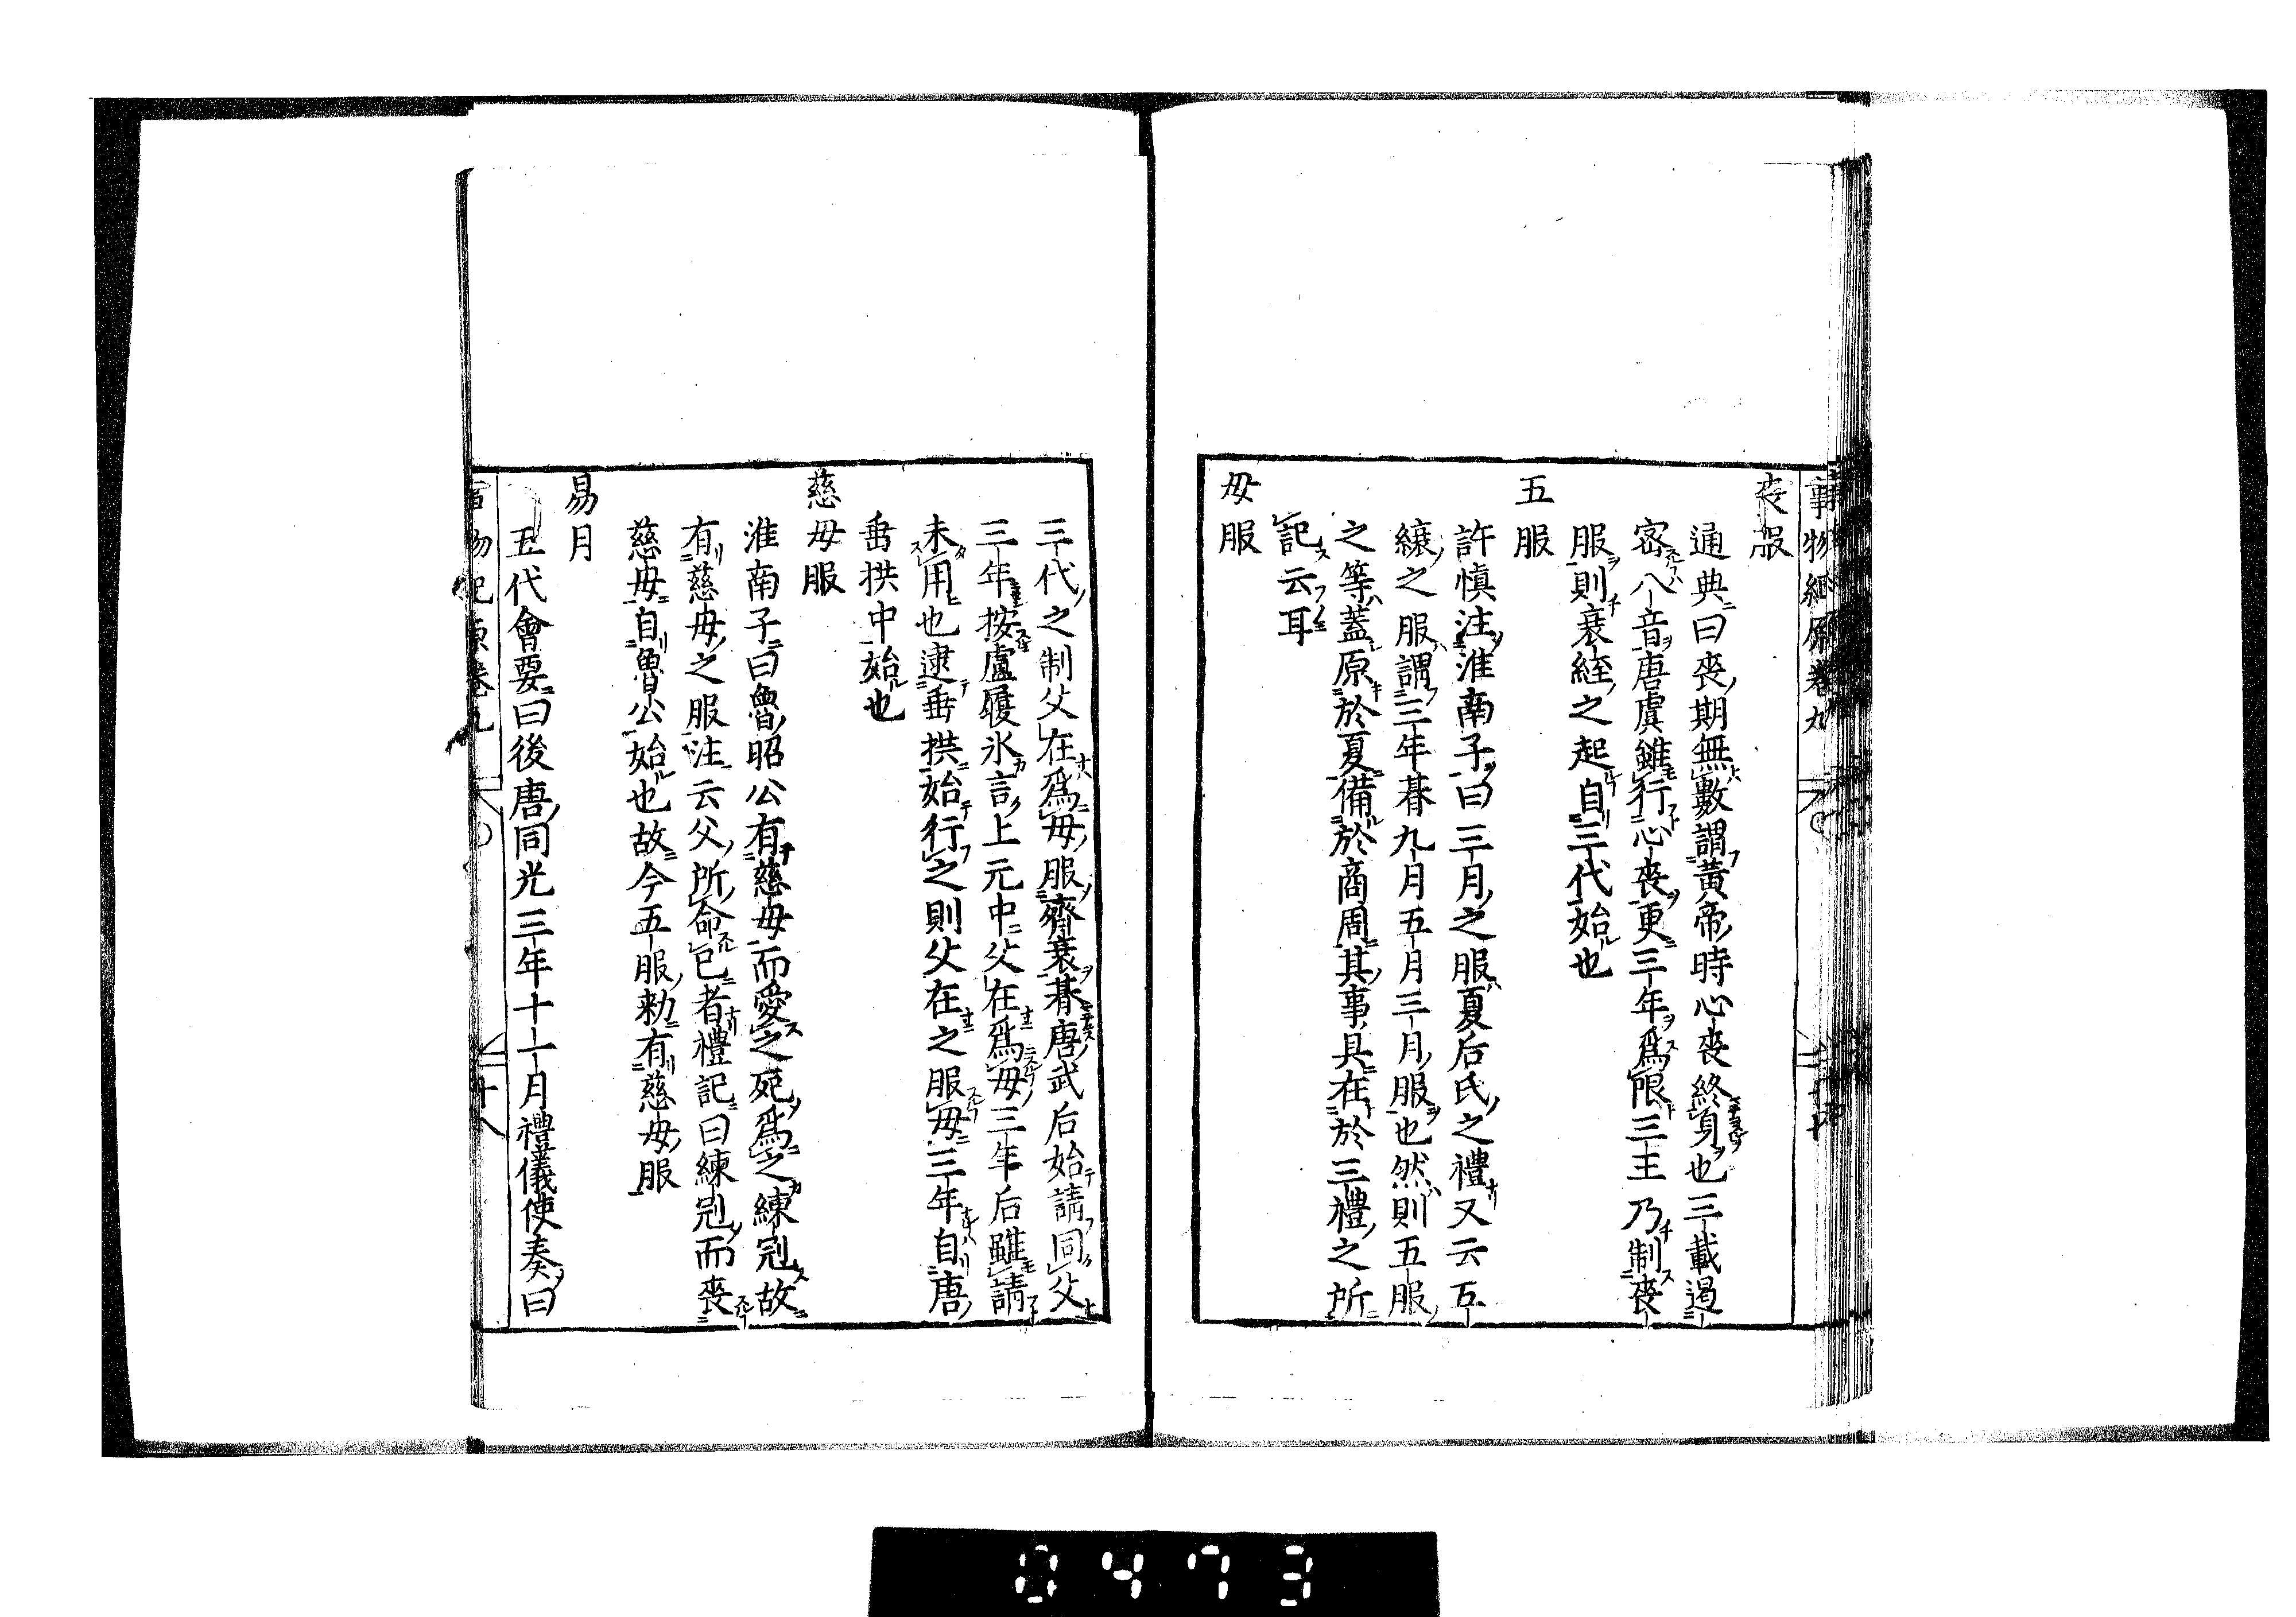 事物紀原卷九
十七
喪服
通典曰喪期無數謂黃帝時心喪終身也三載遏
密八音唐虞雖行心喪更三年爲限三王乃制喪
服則衰絰之起自三代始也
五服
許慎注淮南子曰三月之服夏后氏之禮又云五
縗之服謂三年朞九月五月三月服也然則五服
之等蓋原於夏備於商周其事具在於三禮之所
記云耳
母服
三代之制父在爲母服齊衰朞唐武后始請同父
三年按盧履氷言上元中父在爲母三年后雖請
未用也逮垂拱始行之則父在之服母三年自唐
垂拱中始也
慈母服
淮南子曰魯昭公有慈母而愛之死爲之練冠故
有慈母之服注云父所命已者禮記曰練冠而喪
慈母自魯公始也故今五服勑有慈母服
易月
五代會要曰後唐同光三年十一月禮儀使奏曰
事物紀原卷九
十八
0473